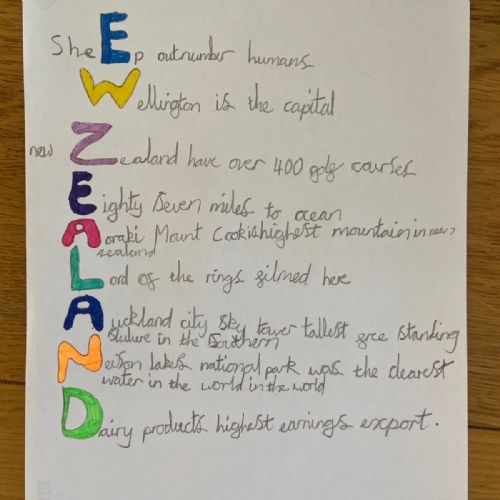 SheEp outnumber humans
Wellington is the capital
new Zealand have over 400 golf courses
Eighty Seven miles to ocean
Aoraki Mount Cook is highest mountain in new
zealand
Lord of the rings filmed here
Auckland city Sky tower tallest free standing
in the Southern
Nelson lakes national park was the clearest
water in the world in the world
Dairy products highest earnings export.